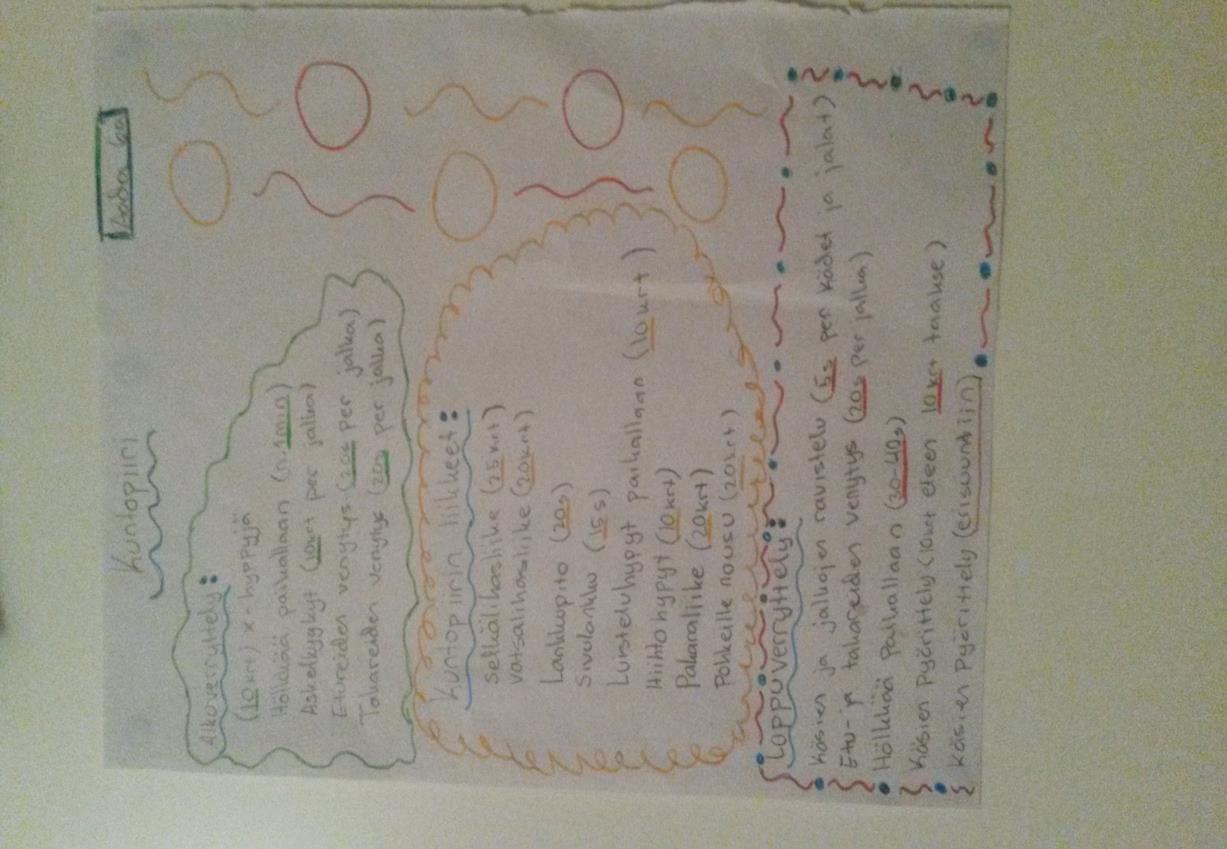 Kuntopiiri
Alkuverryttely:
(10krt) x-hyppyjä
Hölkkää paikallaan (n.1min)
Askelkyykyt (10krt per jalka)
Etureiden venytys (20s per jalka)
Takareiden venytys (20s per jalka)
Kuntopiirin liikkeet:
Selkälihasliike (25krt)
vatsalihasliike (20krt)
Lankkupito (20s)
Sivulankku (15s)
Luisteluhypyt paikallaan (10krt)
Hiihtohypyt (10krt)
Pakaraliike (20krt)
Pohkeille nousu (20krt)
Loppuverryttely:
Käsien ja jalkojen ravistelu (5s per kädet ja jalat)
Etu- ja takareiden venytys (20s per jalka)
Hölkkää Paikallaan (30-40s)
Käsien Pyörittely (10krt eteen 10krt taakse)
Käsien Pyörittely (erisuuntiin)